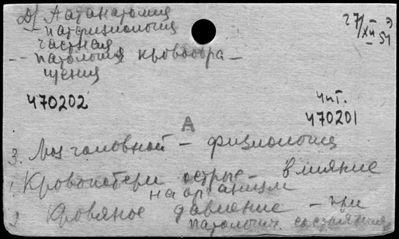 Д) Патанатомия
и патфизиология
частная
-- патология кровообра-
щения
27/XII э
- 51
470202
чит.
470201
А
3. Мозг головной - физиология
1. Кровопотери острые - влияние
на организм
2. Кровяное давление - при
патологич. состояниях